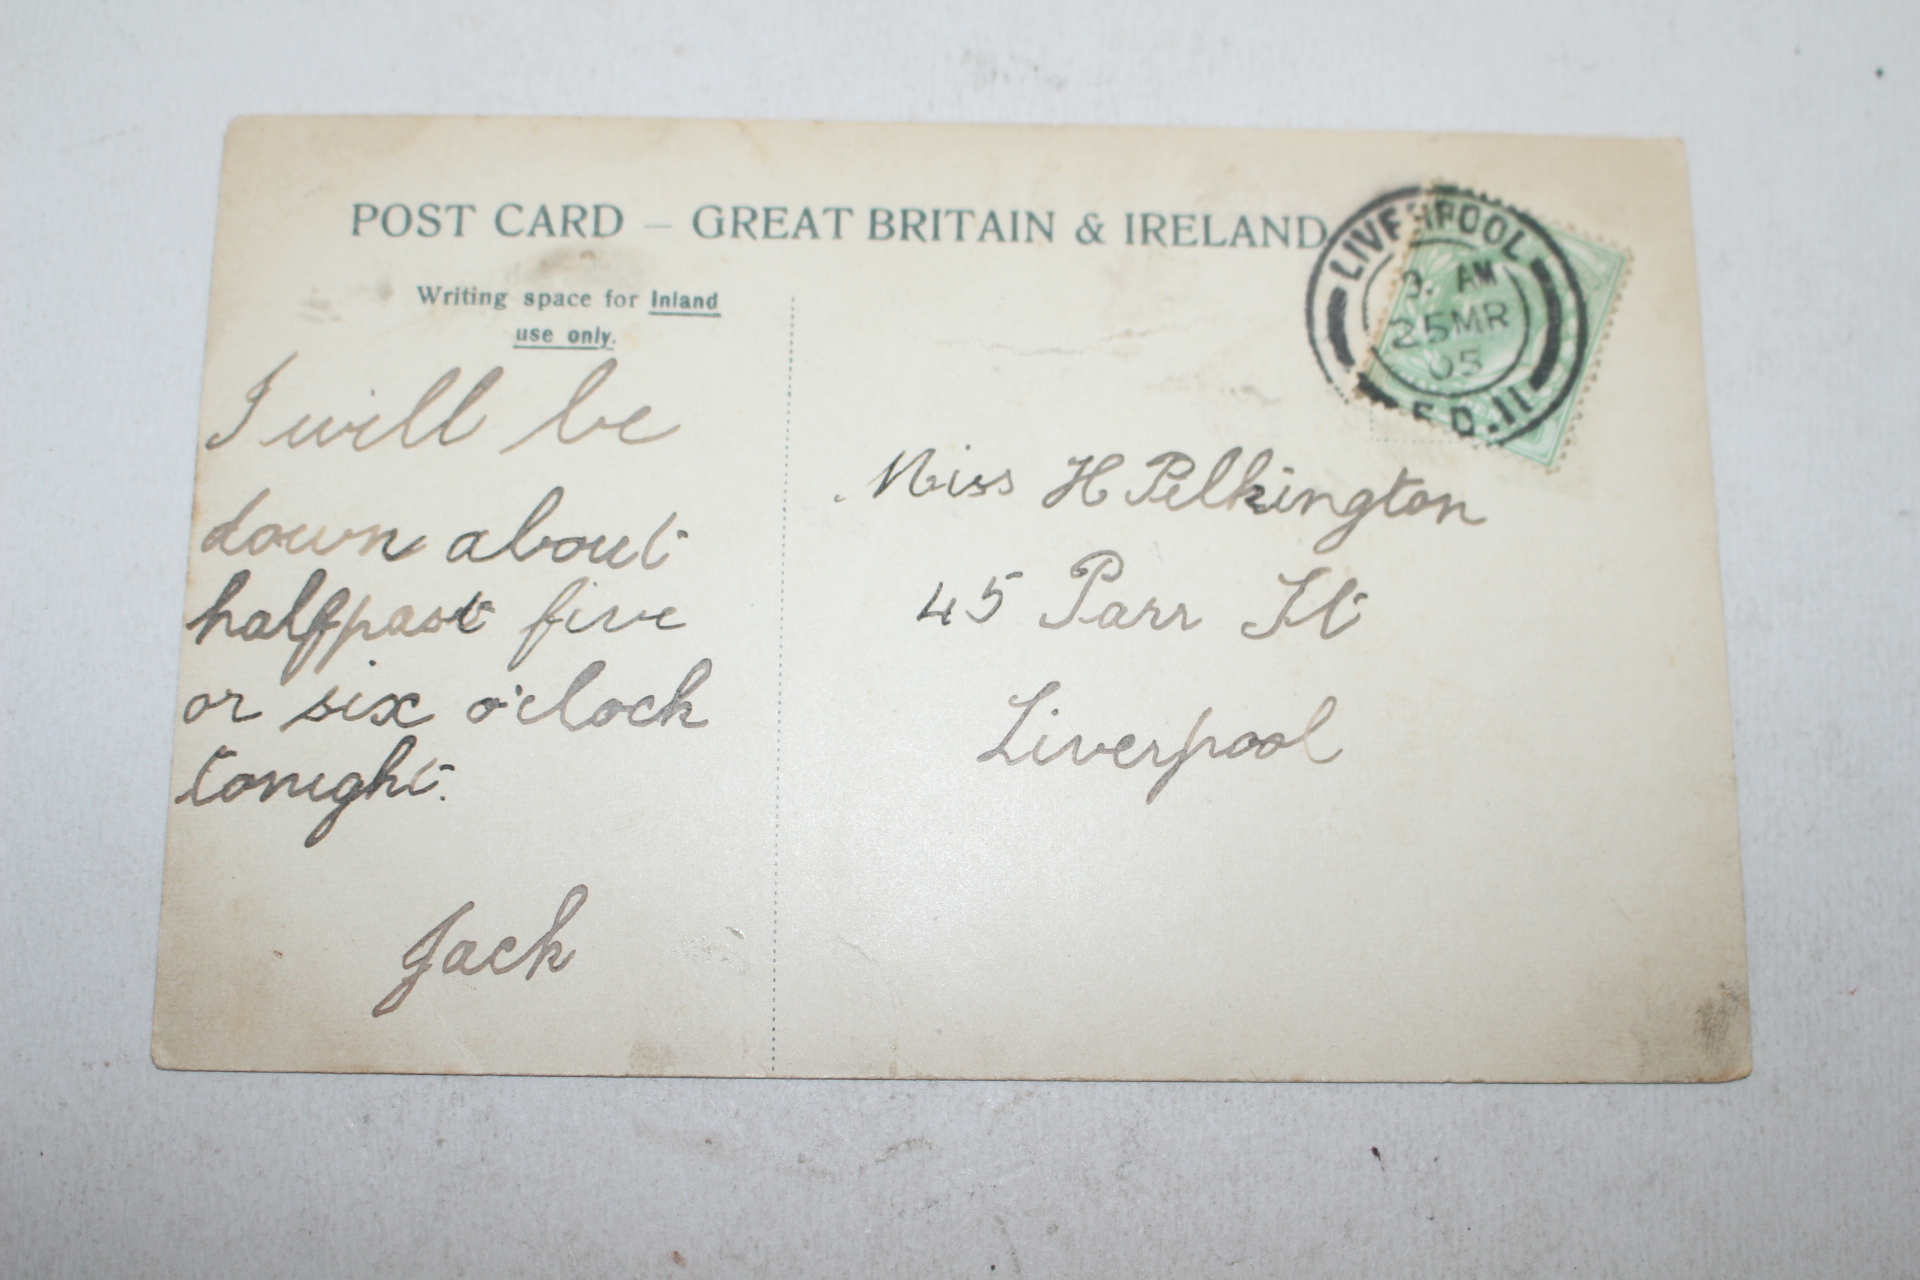 POST CARD – GREAT BRITAIN & IRELAND
Writing space for Inland
use only.
I will be
down about
halfpast five
or six o'clock
tonight.
Jack
LIVERPOOL
AM
25 MR
05
11
Miss H Pelkington
45 Parr St
Liverpool